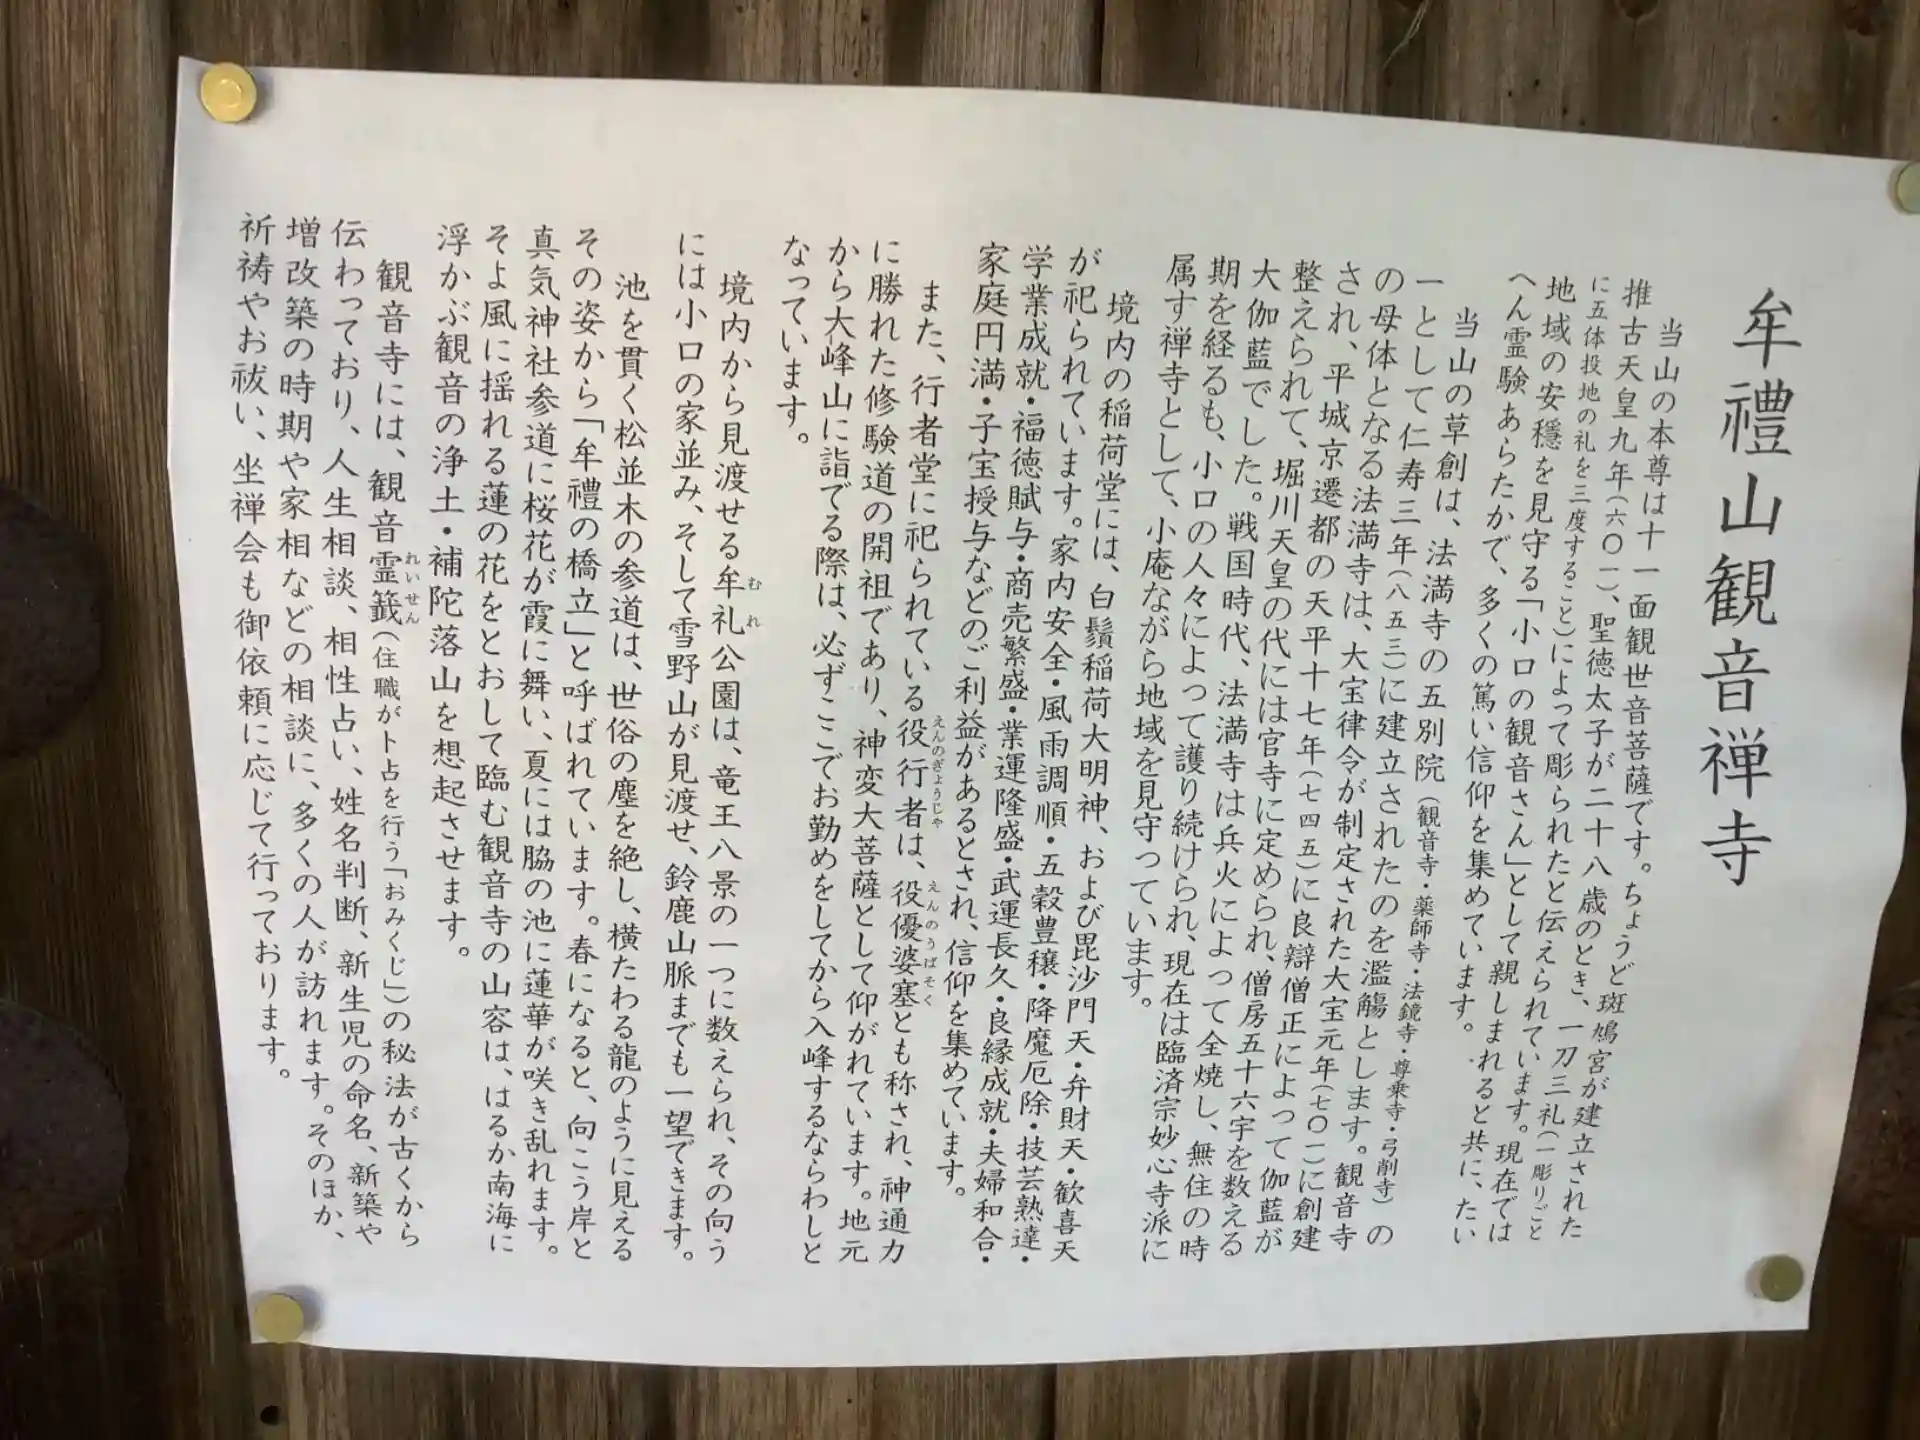 牟禮山観音禅寺
当山の本尊は十一面観世音菩薩です。ちょうど斑鳩宮が建立された
推古天皇九年(六〇一)、聖徳太子が二十八歳のとき、一刀三礼(一彫りごと
に五体投地の礼を三度すること)によって彫られたと伝えられています。現在では
地域の安穏を見守る「小口の観音さん」として親しまれると共に、たい
へん霊験あらたかで、多くの篤い信仰を集めています。
当山の草創は、法満寺の五別院(観音寺・薬師寺・法鏡寺・尊乗寺・弓削寺)の
一として仁寿三年(八五三)に建立されたのを濫觴とします。観音寺
の母体となる法満寺は、大宝律令が制定された大宝元年(七〇一)に創建
され、平城京遷都の天平十七年(七四五)に良辯僧正によって伽藍が
整えられて、堀川天皇の代には官寺に定められ、僧房五十六宇を数える
大伽藍でした。戦国時代、法満寺は兵火によって全焼し、無住の時
期を経るも、小口の人々によって護り続けられ、現在は臨済宗妙心寺派に
属す禅寺として、小庵ながら地域を見守っています。
境内の稲荷堂には、白鬚稲荷大明神、および毘沙門天・弁財天・歓喜天
が祀られています。家内安全・風雨調順・五穀豊穣・降魔厄除・技芸熟達・
学業成就・福徳賦与・商売繁盛・業運隆盛・武運長久・良縁成就・夫婦和合・
家庭円満・子宝授与などのご利益があるとされ、信仰を集めています。
また、行者堂に祀られている役行者は、役優婆塞とも称され、神通力
えんのぎょうじゃ
えんのうばそく
に勝れた修験道の開祖であり、神変大菩薩として仰がれています。地元
から大峰山に詣でる際は、必ずここでお勤めをしてから入峰するならわしと
なっています。
境内から見渡せる牟礼公園は、竜王八景の一つに数えられ、その向う
むれ
には小口の家並み、そして雪野山が見渡せ、鈴鹿山脈までも一望できます。
池を貫く松並木の参道は、世俗の塵を絶し、横たわる龍のように見える
その姿から「牟禮の橋立」と呼ばれています。春になると、向こう岸と
真気神社参道に桜花が霞に舞い、夏には脇の池に蓮華が咲き乱れます。
そよ風に揺れる蓮の花をとおして臨む観音寺の山容は、はるか南海に
浮かぶ観音の浄土・補陀落山を想起させます。
観音寺には、観音霊籤(住職が卜占を行う「おみくじ」)の秘法が古くから
れいせん
伝わっており、人生相談、相性占い、姓名判断、新生児の命名、新築や
増改築の時期や家相などの相談に、多くの人が訪れます。そのほか、
祈祷やお祓い、坐禅会も御依頼に応じて行っております。